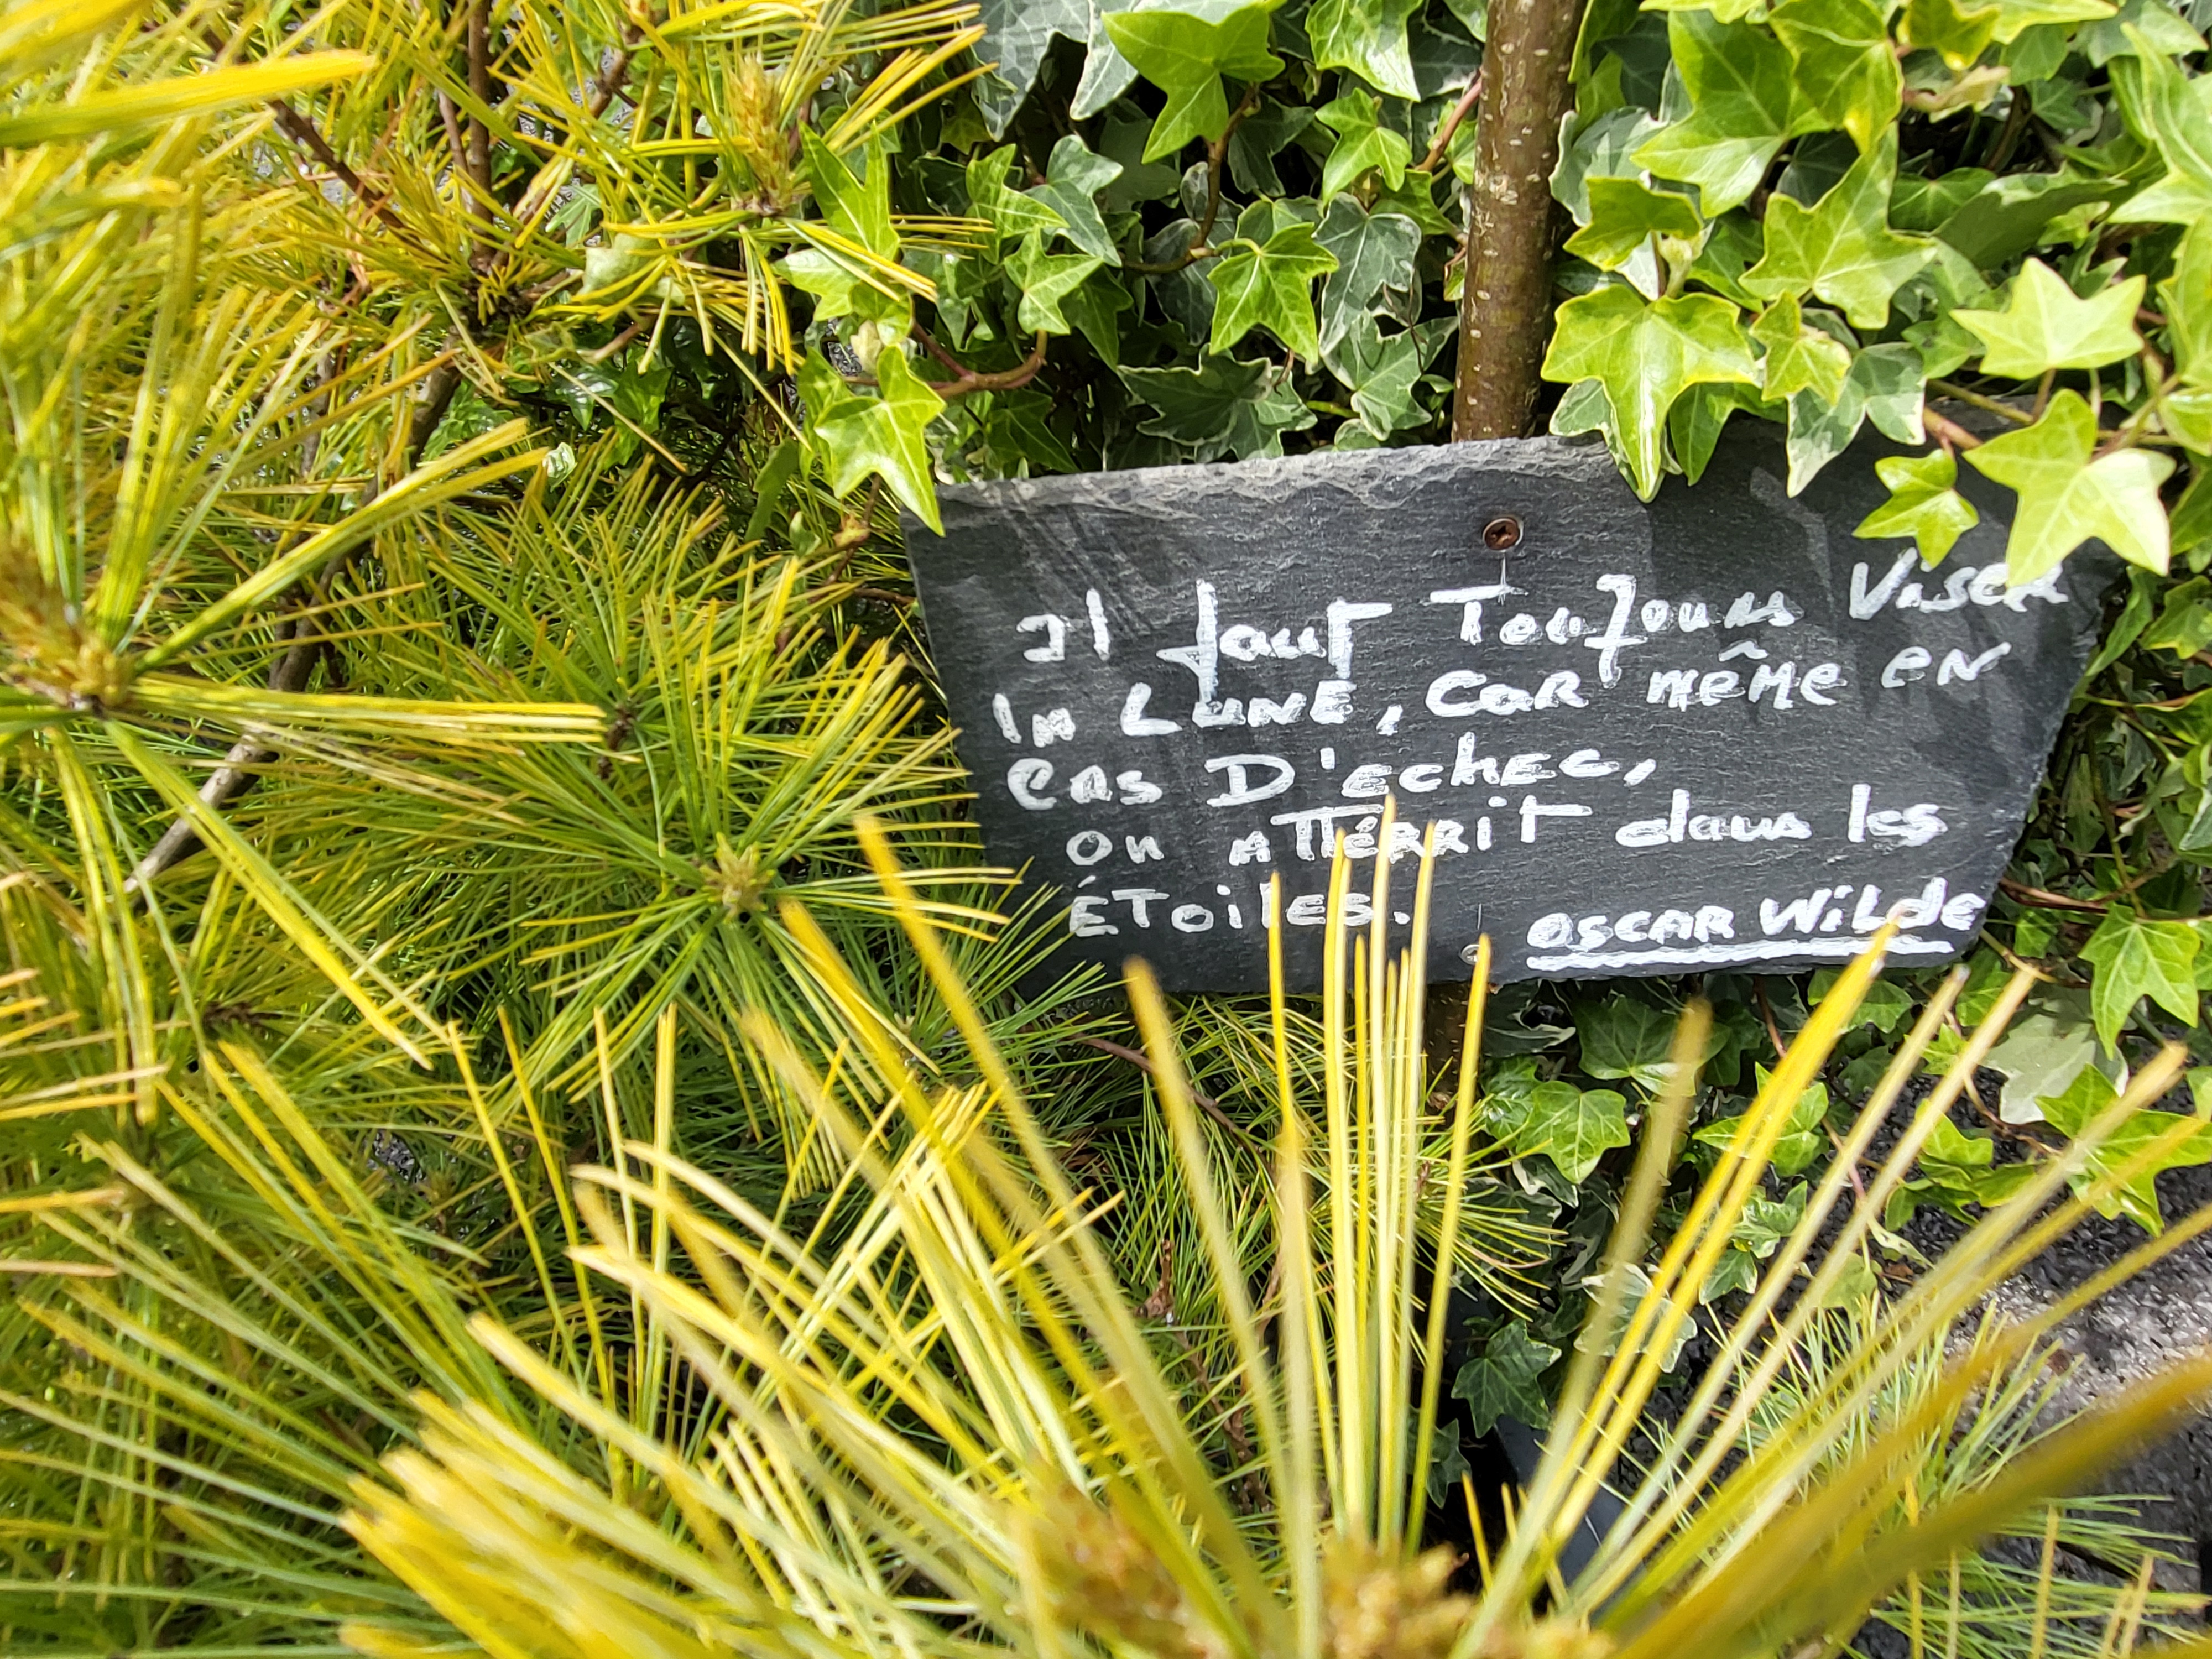 Il faut Toujours Viser
la LUNE, car même en
cas D'echec,
on atterrit dans les
ÉToiles.
OSCAR Wilde